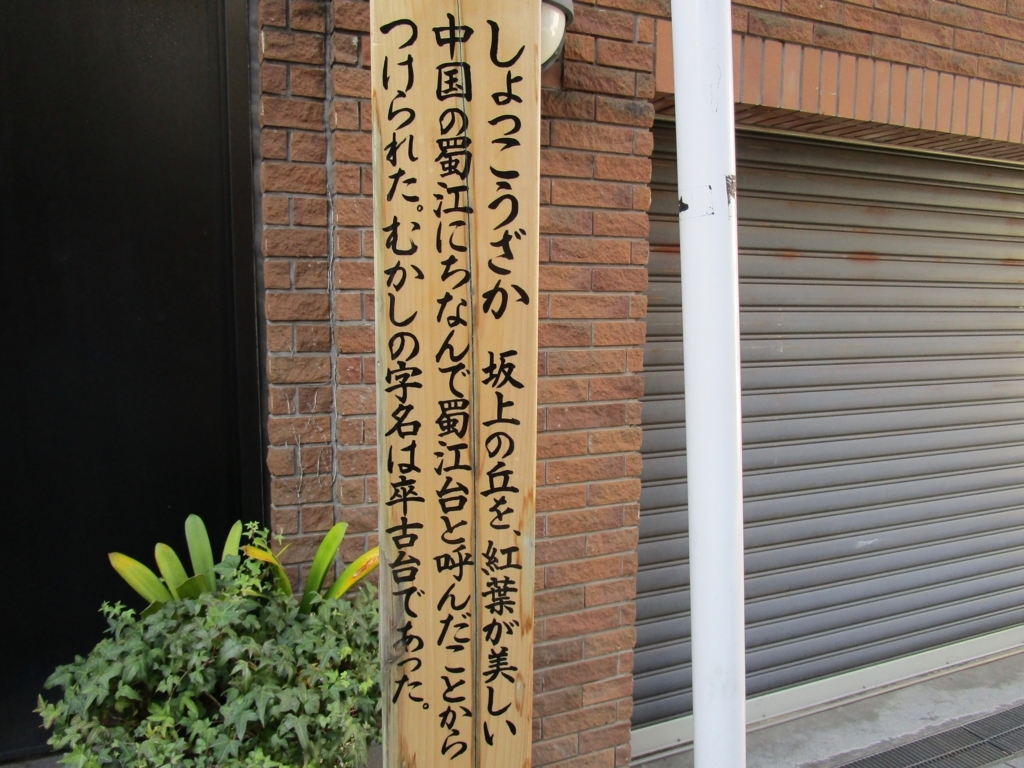 しょっこうざか　坂上の丘を、紅葉が美しい
中国の蜀江にちなんで蜀江台と呼んだことから
つけられた。むかしの字名は卒古台であった。